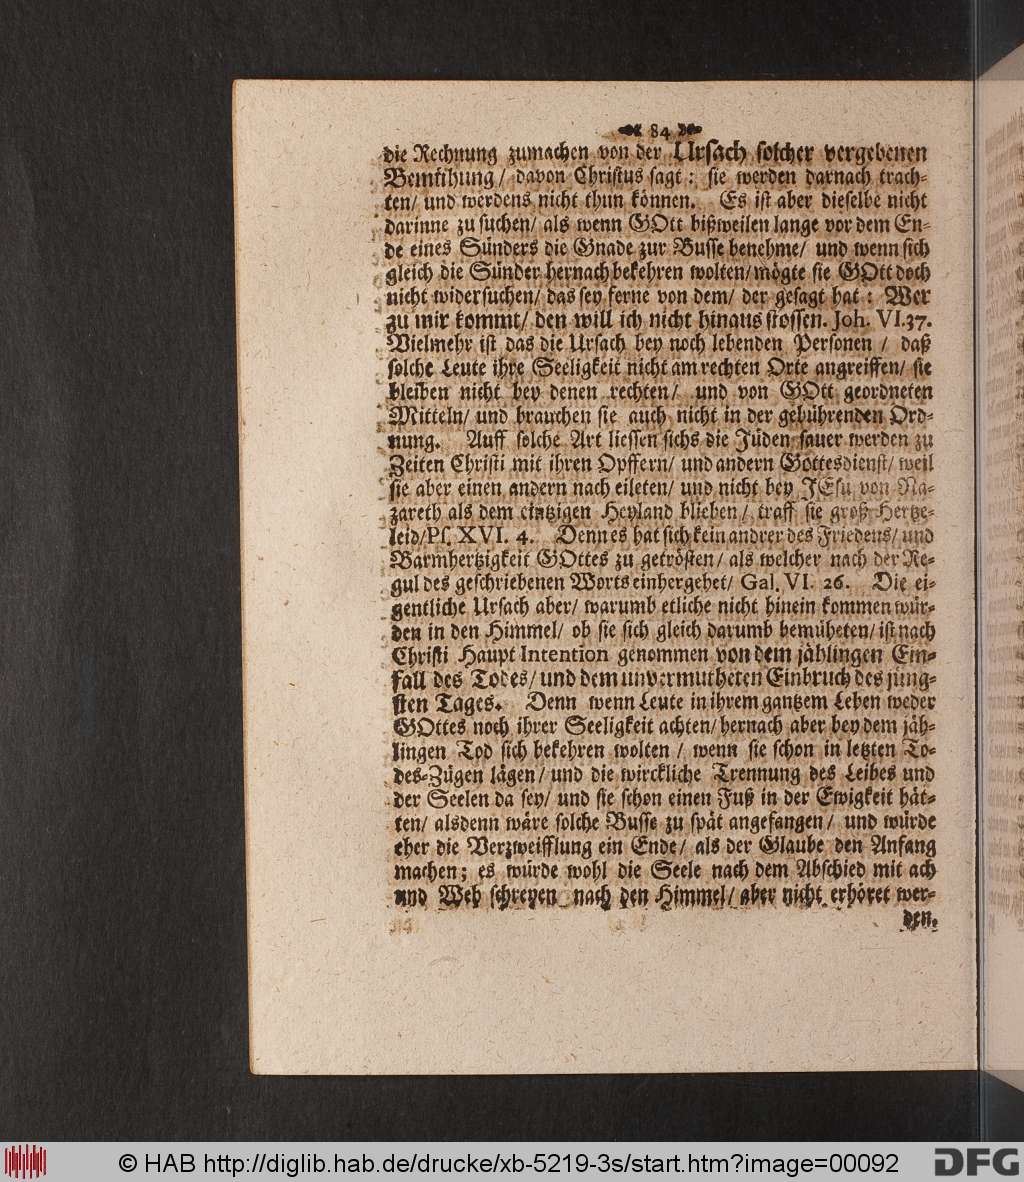 84
die Rechnung zumachen von der Ursach solcher vergebenen
Bemühung/ davon Christus sagt: sie werden darnach trach-
ten/ und werdens nicht thun können. Es ist aber dieselbe nicht
darinne zu suchen/ als wenn GOtt bißweilen lange vor dem En-
de eines Sünders die Gnade zur Busse benehme/ und wenn sich
gleich die Sünder hernach bekehren wolten/ mögte sie GOtt doch
nicht widersuchen/ das sey ferne von dem/ der gesagt hat: Wer
zu mir kommt/ den will ich nicht hinaus stossen. Joh. VI.37.
Vielmehr ist das die Ursach bey noch lebenden Personen / daß
solche Leute ihre Seeligkeit nicht am rechten Orte angreiffen/ sie
bleiben nicht bey denen rechten/ und von GOtt geordneten
Mitteln/ und brauchen sie auch nicht in der gebührenden Ord-
nung. Auff solche Art liessen sichs die Jüden sauer werden zu
Zeiten Christi mit ihren Opffern/ und andern Gottesdienst/ weil
sie aber einen andern nach eileten/ und nicht bey JEsu von Na-
zareth als dem eintzigen Heyland blieben/ traff sie groß Hertze-
leid/ Ps. XVI. 4. Denn es hat sich kein andrer des Friedens/ und
Barmhertzigkeit GOttes zu getrösten/ als welcher nach der Re-
gul des geschriebenen Worts einhergehet/ Gal. VI. 26. Die ei-
gentliche Ursach aber/ warumb etliche nicht hinein kommen wür-
den in den Himmel/ ob sie sich gleich darumb bemüheten/ ist nach
Christi Haupt Intention genommen von dem jählingen Ein-
fall des Todes/ und dem unvermutheten Einbruch des jüng-
sten Tages. Denn wenn Leute in ihrem gantzem Leben weder
GOttes noch ihrer Seeligkeit achten/ hernach aber bey dem jäh-
lingen Tod sich bekehren wolten / wenn sie schon in letzten To-
des-Zügen lägen/ und die wirckliche Trennung des Leibes und
der Seelen da sey/ und sie schon einen Fuß in der Ewigkeit hät-
ten/ alsdenn wäre solche Busse zu spät angefangen/ und würde
eher die Verzweifflung ein Ende/ als der Glaube den Anfang
machen; es würde wohl die Seele nach dem Abschied mit ach
und Weh schreyen nach den Himmel/ aber nicht erhöret wer-
den.
© HAB http://diglib.hab.de/drucke/xb-5219-3s/start.htm?image=00092
DFG